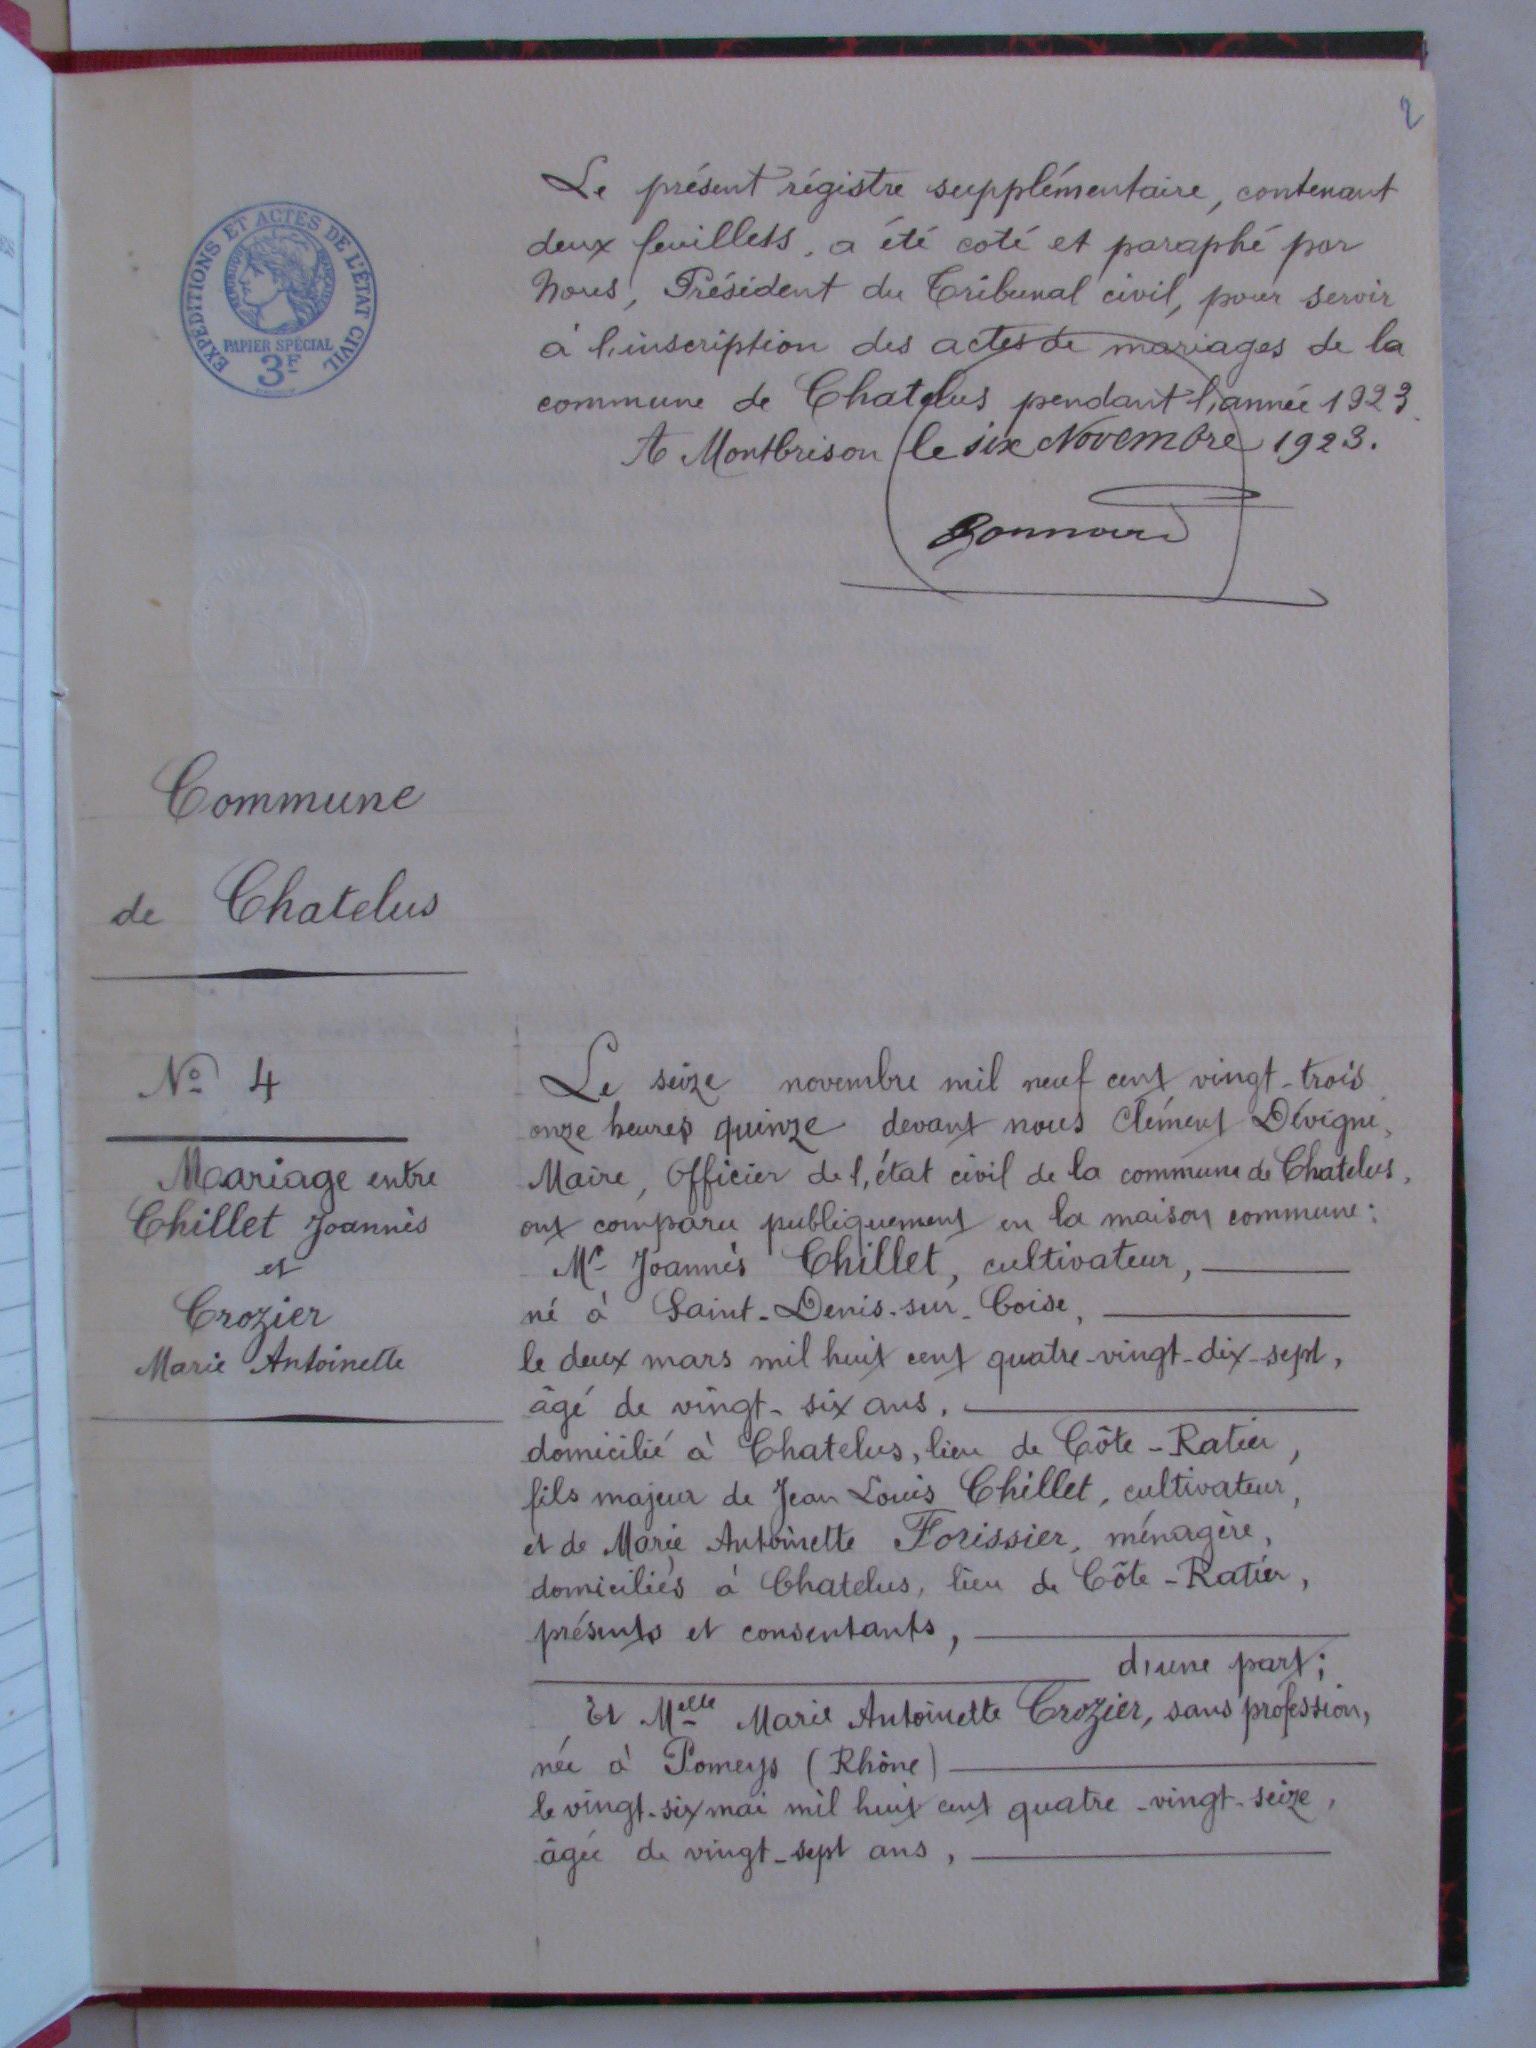 2
Le présent régistre supplémentaire, contenant
deux feuillets, a été coté et paraphé par
Nous, Président du Tribunal civil, pour servir
à l'inscription des actes de mariages de la
commune de Chatelus pendant l'année 1923.
A Montbrison le six Novembre 1923.
EXPÉDITIONS ET ACTES DE L'ÉTAT CIVIL
PAPIER SPÉCIAL
3F
Commune
de Chatelus
No 4
Mariage entre
Chillet Joannès
et
Crozier
Marie Antoinette
Le seize novembre mil neuf cent vingt-trois
onze heures quinze devant nous Clément Dévigne,
Maire, Officier de l'état civil de la commune de Chatelus,
ont comparu publiquement en la maison commune:
Mr Joannès Chillet, cultivateur,
né à Saint-Denis-sur-Coise,
le deux mars mil huit cent quatre-vingt-dix-sept,
âgé de vingt-six ans,
domicilié à Chatelus, lieu de Côte-Ratier,
fils majeur de Jean Louis Chillet, cultivateur,
et de Marie Antoinette Forissier, ménagère,
domiciliés à Chatelus, lieu de Côte-Ratier,
présents et consentants,
d'une part;
Et Melle Marie Antoinette Crozier, sans profession,
née à Pomeys (Rhône)
le vingt-six mai mil huit cent quatre-vingt-seize,
âgée de vingt-sept ans,